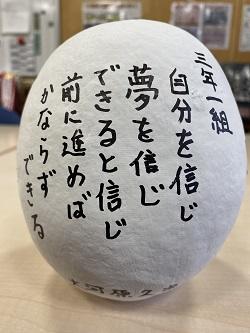 三年一組
自分を信じ
夢を信じ
できると信じ
前に進めば
かならず
できる